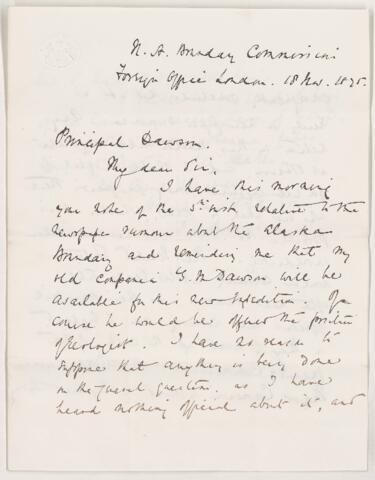 N. A. Boundary Commission
Foreign Office London. 18 Nov. 1875.
Principal Dawson.
My dear Sir,
I have this morning
your note of the 5th inst. relative to the
newspaper rumour about the Alaska
Boundary and reminding me that my
old companion G. M. Dawson will be
available for this new expedition. Of
course he would be offered the position
of Geologist. I have no reason to
suppose that anything is being done
in the general question, as I have
heard nothing official about it, and